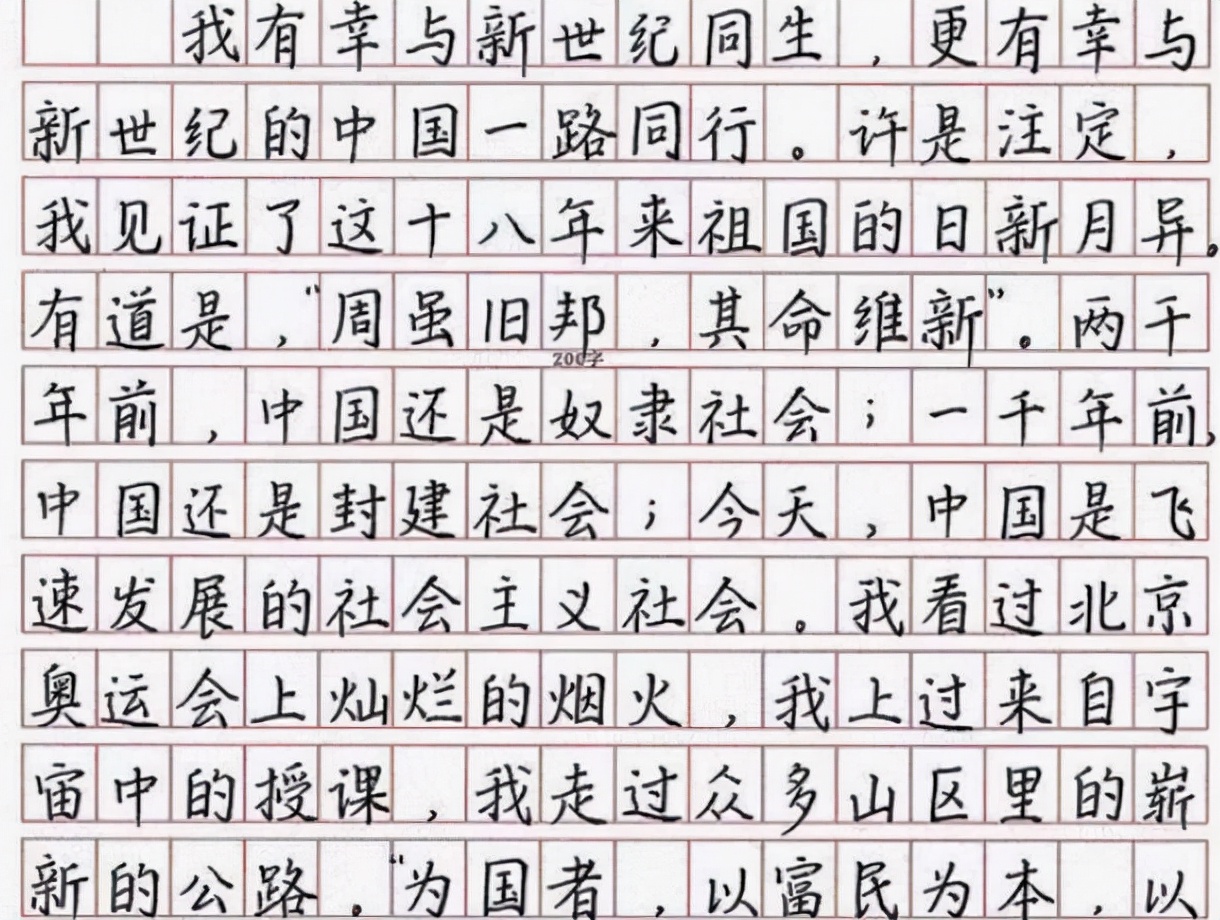 我有幸与新世纪同生，更有幸与
新世纪的中国一路同行。许是注定，
我见证了这十八年来祖国的日新月异。
有道是，“周虽旧邦，其命维新”。两千
200字
年前，中国还是奴隶社会；一千年前，
中国还是封建社会；今天，中国是飞
速发展的社会主义社会。我看过北京
奥运会上灿烂的烟火，我上过来自宇
宙中的授课，我走过众多山区里的崭
新的公路。“为国者，以富民为本，以